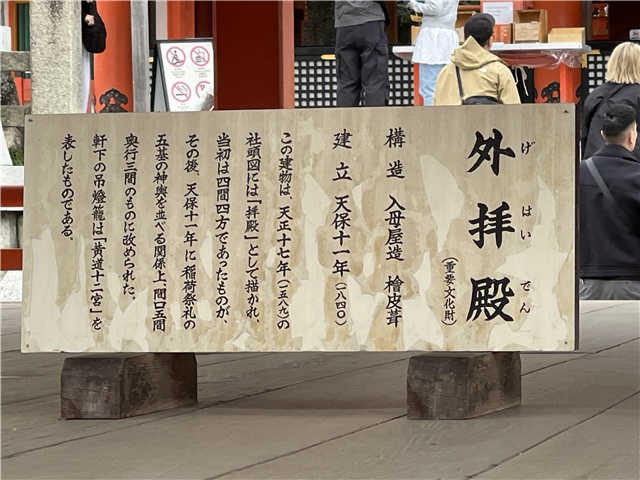 外拝殿
げ はい でん
(重要文化財)
構造 入母屋造 檜皮葺
建立 天保十一年(一八四〇)
この建物は、天正十七年(一五八九)の
社頭図には「拝殿」として描かれ、
当初は四間四方であったものが、
その後、天保十一年に稲荷祭礼の
五基の神輿を並べる関係上、間口五間
奥行三間のものに改められた。
軒下の吊燈籠は「黄道十二宮」を
表したものである。